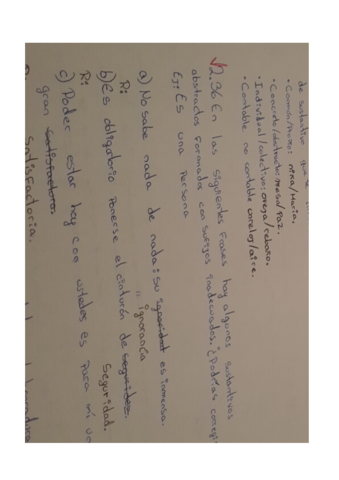 de sustantivo que
• Común/Propio: niña/María.
• Concreto/abstracto: mesa/Paz.
• Individual/colectivo: oveja/rebaño.
• Contable no contable: /aire.
2.36 En las siguientes frases hay algunos sustantivos
abstractos formada con sufijos inadecuados. ¿Podrías
Ej: Es una Persona
a) No sabe nada de nada: su es inmensa.
ignorancia
R:
b) Es obligatorio Ponerse el cinturón de
Seguridad.
R:
c) Poder estar hoy con ustedes es Para mí
gran
Satisfactoria.